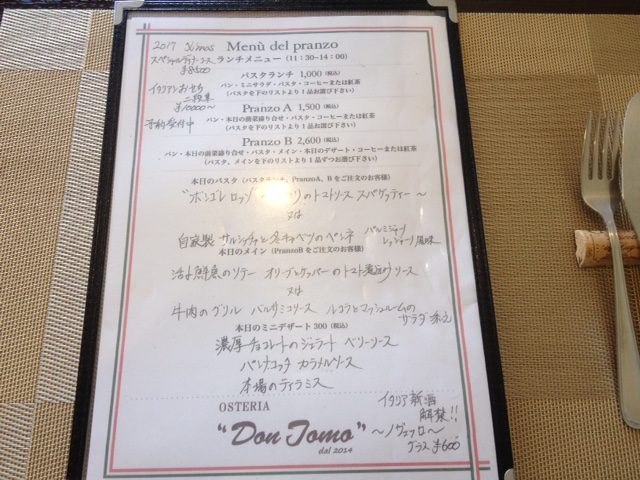 2017 Xmas
スペシャルディナーコース
¥8500
イタリアンおせち
二段重
¥10000～
予約受付中
Menù del pranzo
ランチメニュー（11：30~14：00）
パスタランチ 1,000（税込）
パン・ミニサラダ・パスタ・コーヒーまたは紅茶
（パスタを下のリストより１品お選び下さい）
Pranzo A 1,500（税込）
パン・本日の前菜盛り合せ・パスタ・コーヒーまたは紅茶
（パスタを下のリストより１品お選び下さい）
Pranzo B 2,600（税込）
パン・本日の前菜盛り合せ・パスタ・メイン・本日のデザート・コーヒーまたは紅茶
（パスタ、メインを下のリストより１品ずつお選び下さい）
本日のパスタ（パスタランチ、PranzoA、Bをご注文のお客様）
"ボンゴレ ロッソ りのトマトソース スパゲッティー～
又は
自家製 サルシッチャと冬キャベツのペンネ パルミジャーノ レッジャーノ風味
本日のメイン（PranzoBをご注文のお客様）
活〆鮮魚のソテー オリーブとケッパーのトマト煮込みソース
又は
牛肉のグリル バルサミコソース ルコラとマッシュルームの
サラダ添え
本日のミニデザート 300（税込）
濃厚チョコレートのジェラート ベリーソース
パンナコッタ カラメルソース
本場のティラミス
OSTERIA
"Don Tomo"
dal 2014
イタリア新酒
解禁!!
～ノヴェッロ～
グラス ¥600